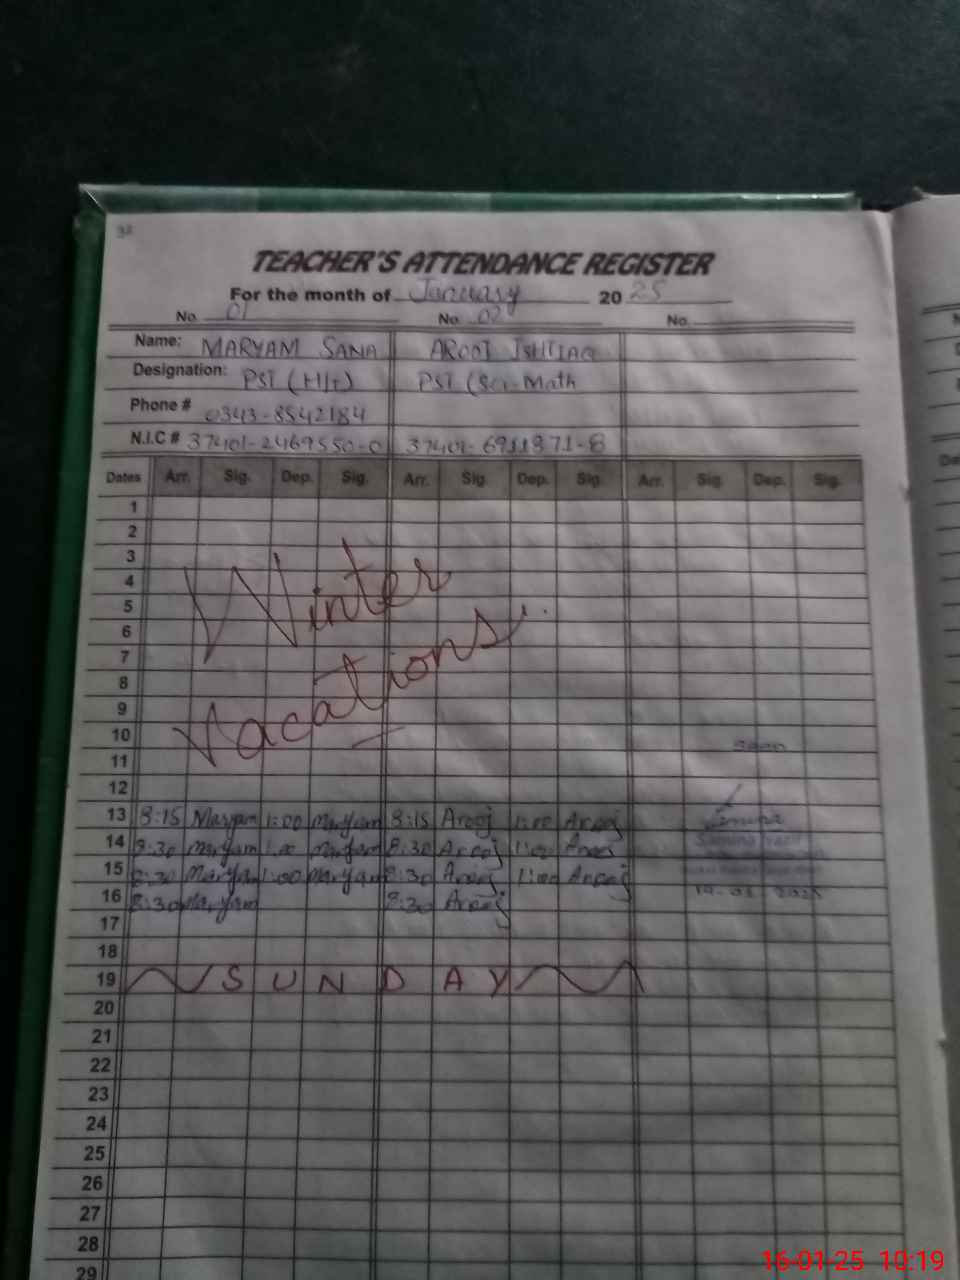 32
TEACHER'S ATTENDANCE REGISTER
For the month of January 2025
No. 01 No. 02 No.
Name: MARYAM SANA AROOJ ISHTIAQ
Designation: PST (H/T) PST (Sci-Math
Phone # 0343-8542184
N.I.C # 37401-2469550-0 37401-6911971-8
Dates Arr. Sig. Dep. Sig. Arr. Sig. Dep. Sig. Arr. Sig. Dep. Sig.
1
2
3
4
5
6
7
8
9
10
11
12
Winter
Vacations.
13 8:15 Maryam 1:00 Maryam 8:15 Arooj 1:00 Arooj
14 8:30 Maryam 1:00 Maryam 8:30 Arooj 1:00 Arooj
15 8:30 Maryam 1:00 Maryam 8:30 Arooj 1:00 Arooj
16 8:30 Maryam 8:30 Arooj
17
18
19 SUNDAY
20
21
22
23
24
25
26
27
28
29
16-01-25 10:19